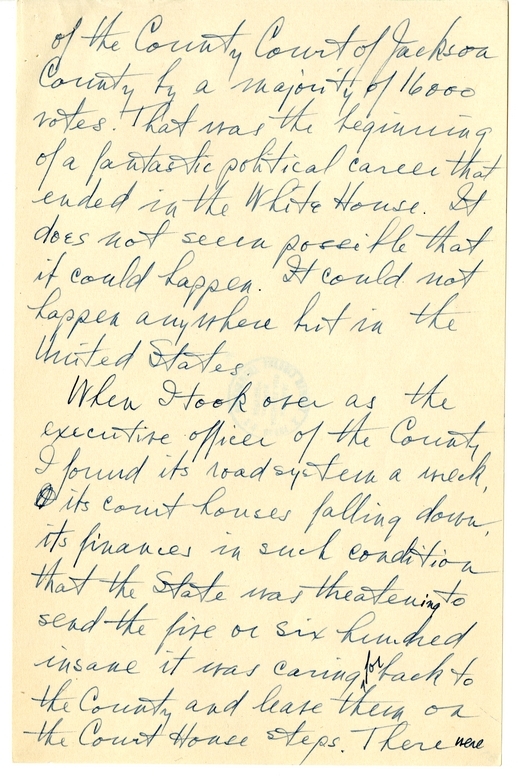 of the County Court of Jackson
County by a majority of 16000
votes. That was the beginning
of a fantastic political career that
ended in the White House. It
does not seem possible that
it could happen. It could not
happen anywhere but in the
United States.
When I took over as the
executive officer of the County
I found its road system a wreck,
its court houses falling down,
its finances in such condition
that the State was threatening to
send the five or six hundred
insane it was caring for back to
the County and leave them on
the Court House steps. There were